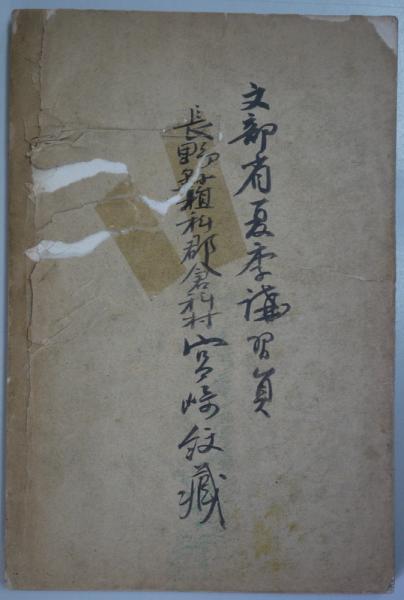 文部省夏季講習員
長野縣埴科郡倉科村 宮崎紋藏